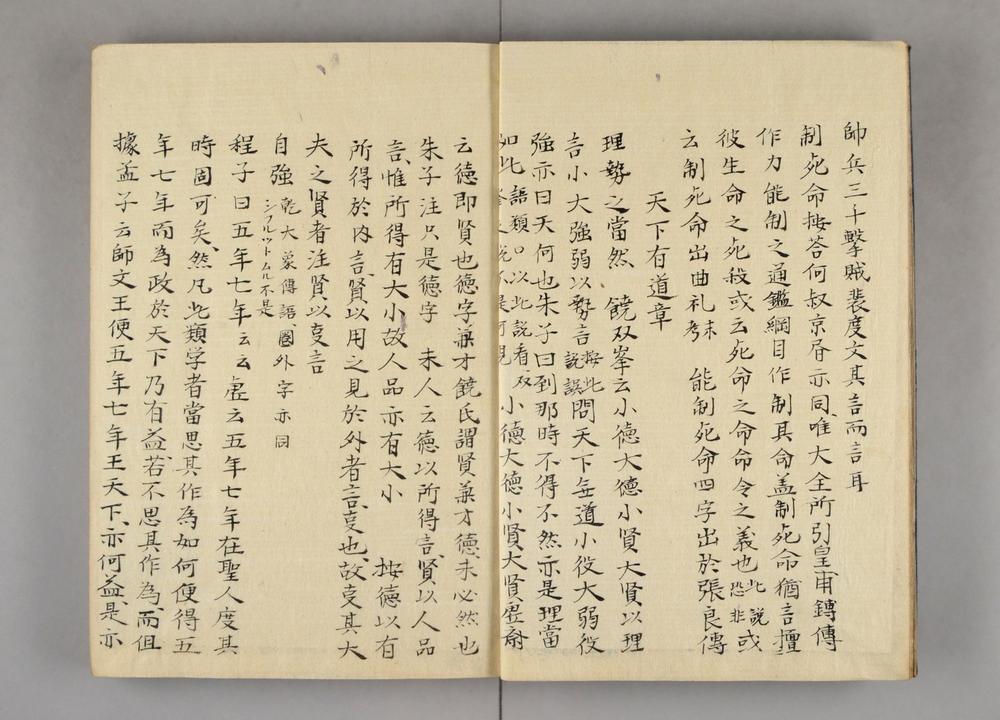 帥兵三十撃賊裴度文其言而言耳
制死命按荅何叔京屑亦同唯大全所引皇甫鎛傳
作力能制之通鑑綱目作制其命盖制死命猶言擅
彼生命之死殺或云死命之命命令之義也此説恐非或
云制死命出曲礼未考 能制死命四字出於張良傳
天下有道章
理勢之當然 饒双峯云小德大德小賢大賢以理
言小大強弱以勢言按此説誤問天下无道小役大弱役
強亦曰天何也朱子曰到那時不得不然亦是理當
如此語類口以此説看双小德大德小賢大賢虚
云德即賢也德字兼才饒氏謂賢兼才德未必然也
朱子注只是德字 朱人云德以所得言賢以人品
言惟所得有大小故人品亦有大小 按德以有
所得於内言賢以用之見於外者言㕝也故㕝其大
夫之賢者注賢以㕝言
自強乾大象傳語圏外字亦同
シフルツトムル不是
程子曰五年七年云云虚云五年七年在聖人度其
時固可矣然凡此類学者當思其作為如何便得五
年七年而為政於天下乃有益若不思其作為而但
據孟子云師文王便五年七年王天下亦何益是亦